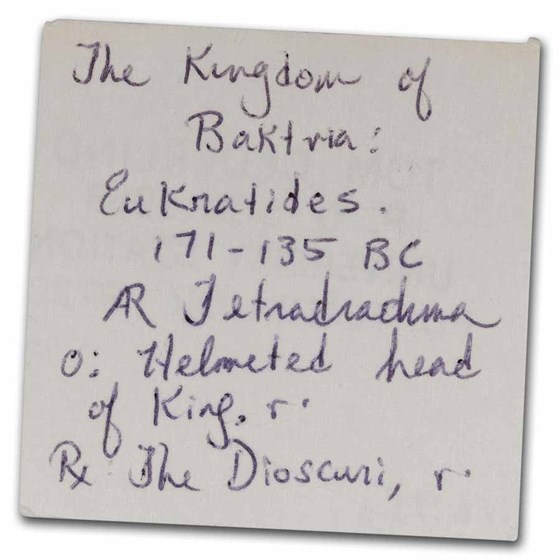 The Kingdom of
Baktria:
Eukratides.
171-135 BC
AR Tetradrachma
O: Helmeted head
of King, r.
Rx The Dioscuri, r.